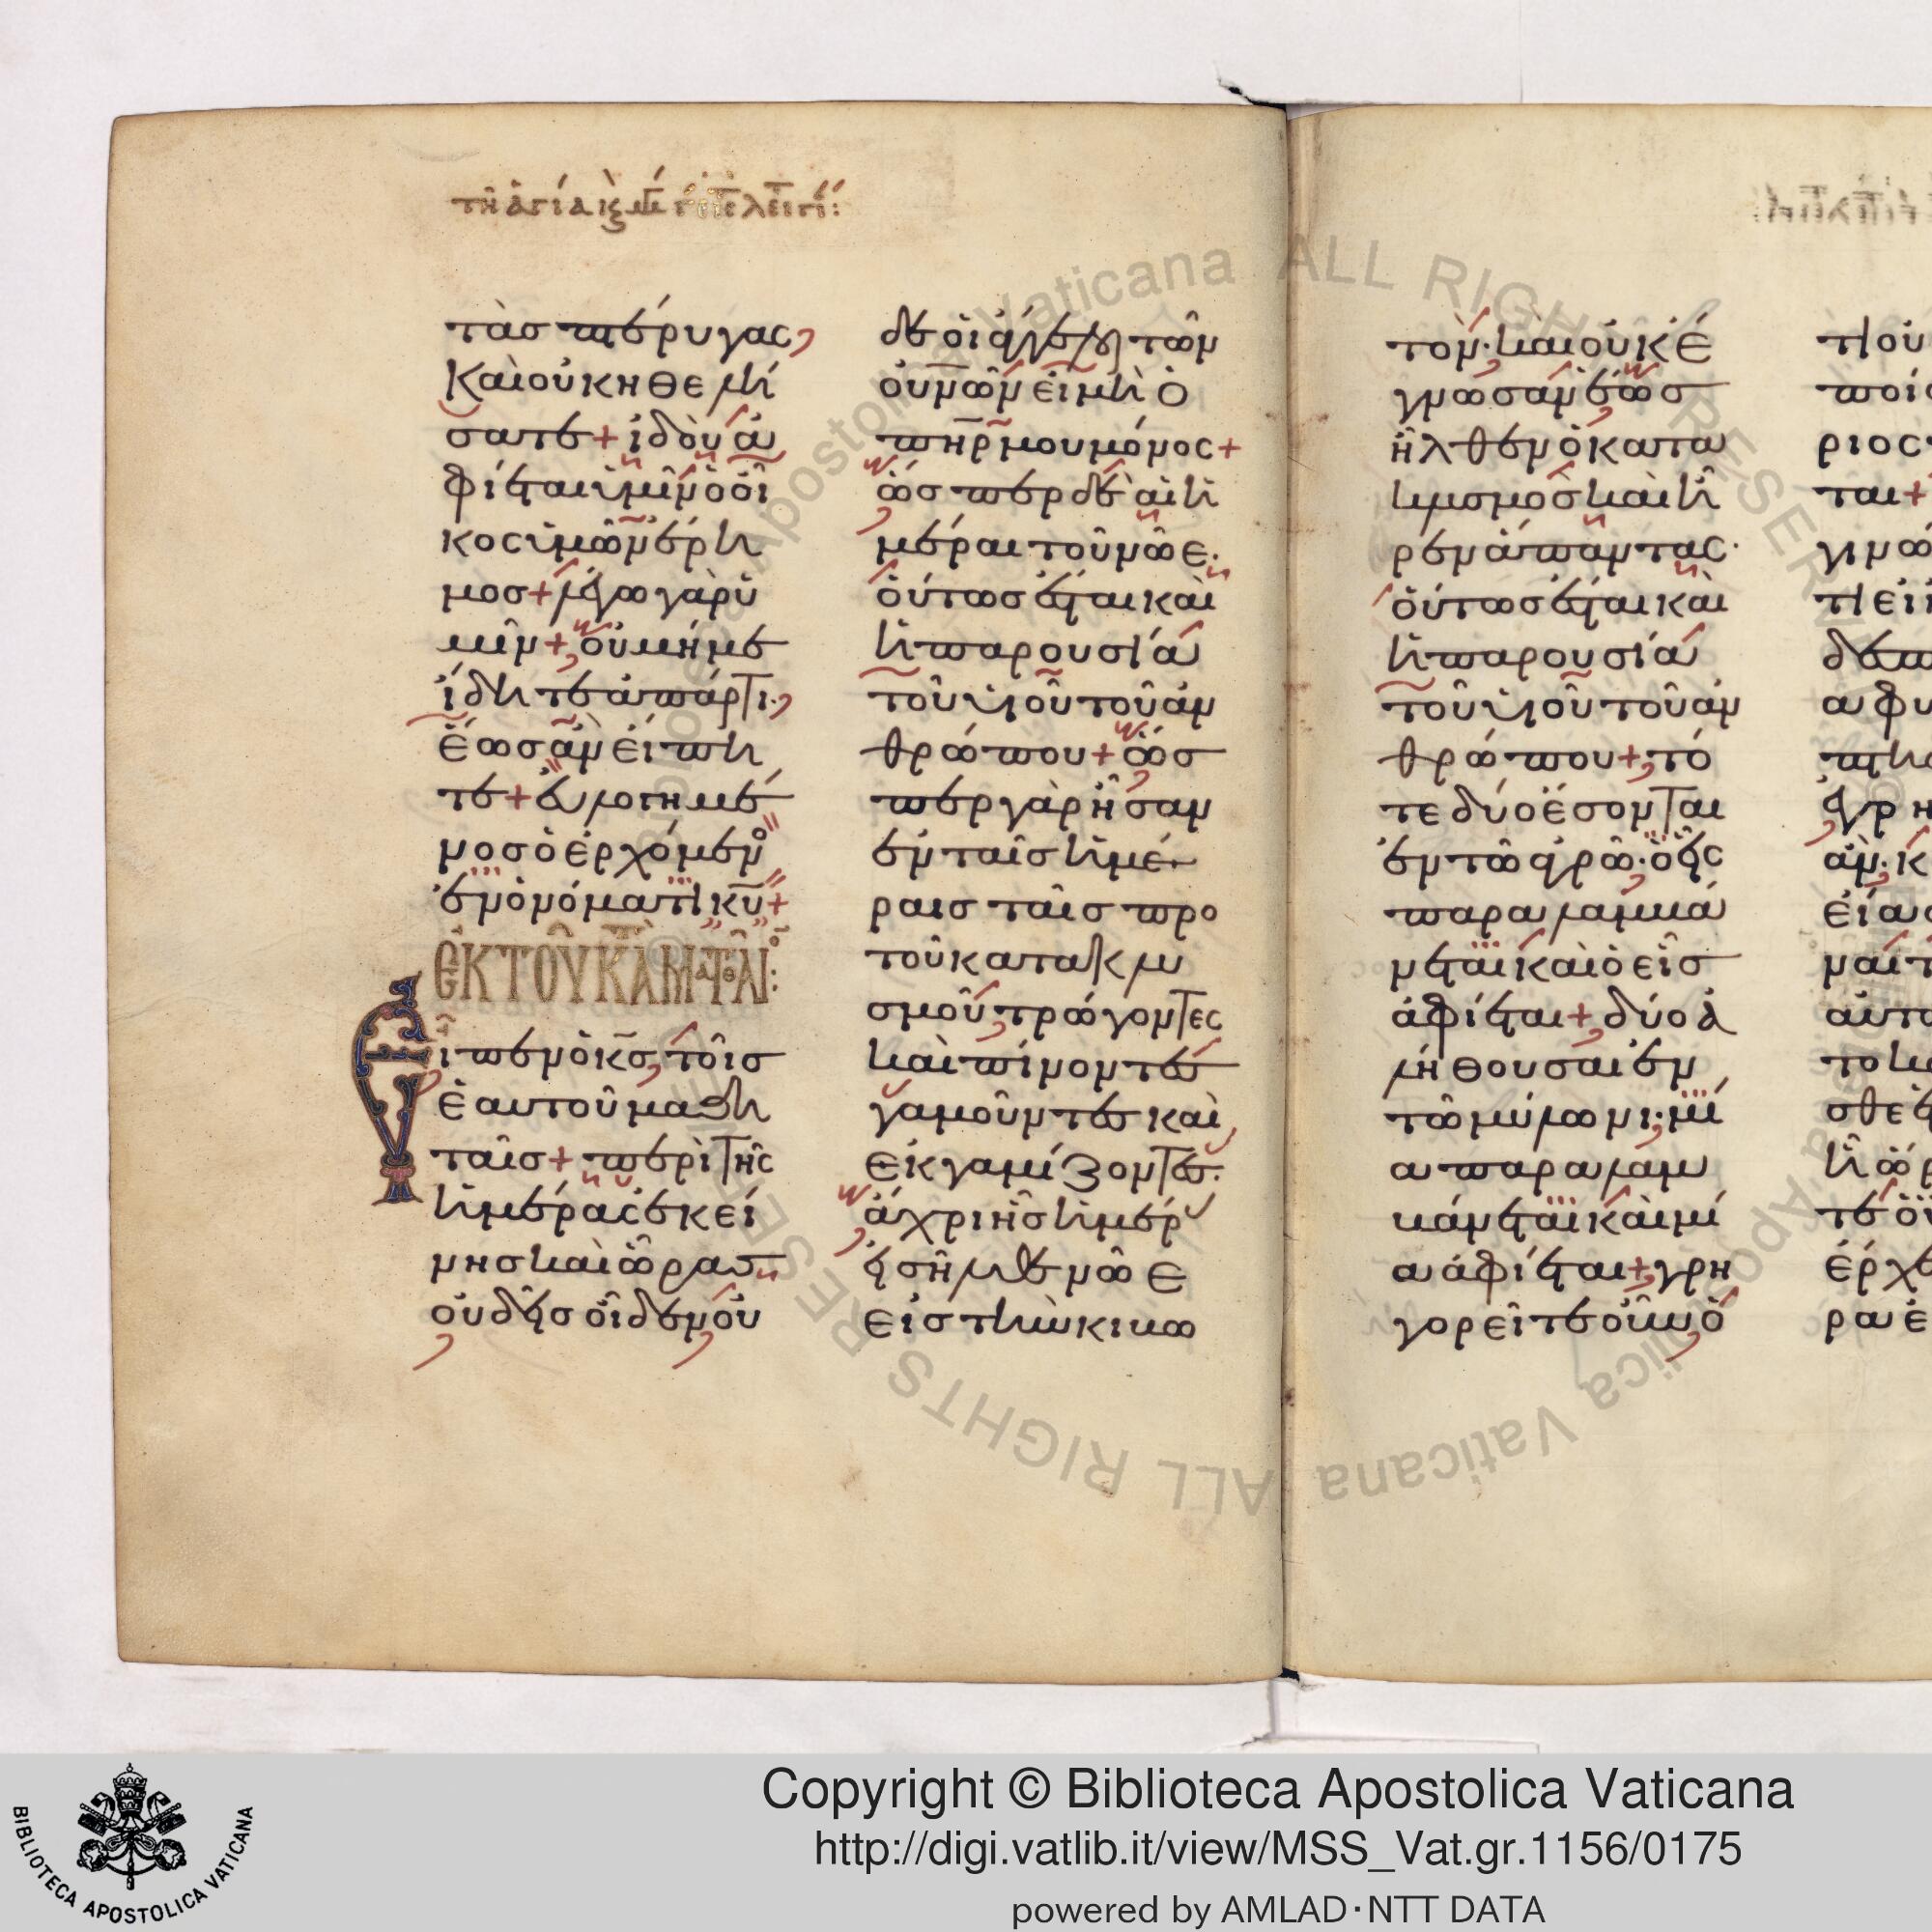 τὰσ πτέρυγας,
Καὶ οὐκ ηθελή
σατε + ἰδοὺ ἀ
φίεται ὑμῖν ὁ οἶ
κος ὑμῶν ἔρη
μοσ + λέγω γὰρ ὑ
μῖν + οὐ μή με
ίδητε ἀπάρτι.,
ἕωσ ἂν είπη
τε + ἐυλογημέ
νοσ ὁ ἐρχόμενο
ἐν ὀνόματι κυ +
ἐκ τοῦ κατὰ Ματθαῖον:
ῖπεν ὁ κσ, τοῖσ
ἑαυτοῦ μαθη
ταῖσ + περὶ τῆς
ἡμέρας ἐκεί
νησ καὶ ὥρασ
οὐδεὶσ οἶδεν οὐ
δὲ οἱ ἄγγελοι τῶν
ουνῶν εἰ μὴ ὁ
πηρ μου μόνος +
ὥσπερ δὲ αἱ ἡ
μέραι τοῦ νῶε.
ὅυτωσ ἔσται καὶ
ἡ παρουσία
τοῦ υἱοῦ τοῦ ἀν
θρώπου + ὥσ
περ γὰρ ἦσαν
ἐν ταῖσ ἡμέ
ραισ ταῖσ προ
τοῦ κατακλυ
σμοῦ, τρώγοντες
καὶ πίνοντεσ
γαμοῦντεσ καὶ
ἐκγαμίζοντεσ.
ἄχρι ἧσ ἡμέρ
εἰσῆλθε νῶε
εἰσ τὴν κιβω
τόν. καὶ οὐκ έ
γνωσαν ἕωσ
ἦλθεν ὁ κατα
κλυσμὸσ καὶ ἦ
ρεν ἅπαντας.
ὅυτωσ ἔσται καὶ
ἡ παρουσία
τοῦ υἱοῦ τοῦ ἀν
θρώπου +, τό
τε δύο ἔσονται
ἐν τῶ ἀγρῶ. ὁ εἷς
παραλαμβά
νεται καὶ ὁ εἷσ
ἀφίεται +, δύο ἀ
λήθουσαι ἐν
τῶ μύλωνι. μί
α παραλαμ
βάνεται καὶ μί
α ἀφίεται + γρη
γορεῖτε οὖν ὅ
Copyright © Biblioteca Apostolica Vaticana
http://digi.vatlib.it/view/MSS_Vat.gr.1156/0175
powered by AMLAD·NTT DATA
BIBLIOTECA APOSTOLICA VATICANA